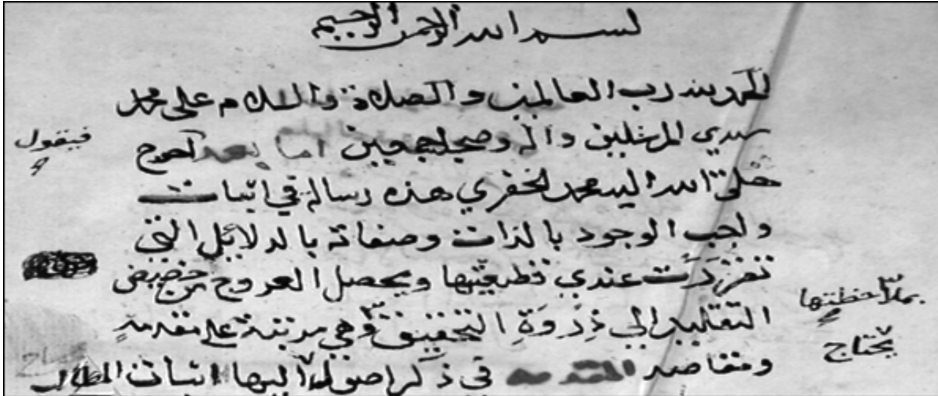 بسم الله الرحمن الرحيم
الحمد لله رب العالمين والصلاة والسلام على محمد
سيدي المرسلين واله وصحبه اجمعين اما بعد احوج
فيقول
خلق الله اليه محمد الخفري هذه رسالة في اثبات
واجب الوجود بالذات وصفاته بالدلائل التي
تقررت عندي قطعيتها ويحصل العروج من حضيض
بملاحظتها
التقليد الي ذروة التحقيق وهي مرتبة علي مقدمة
يحتاج
ومقاصد المقدمه في ذكر اصول اليها اثبات المطالب